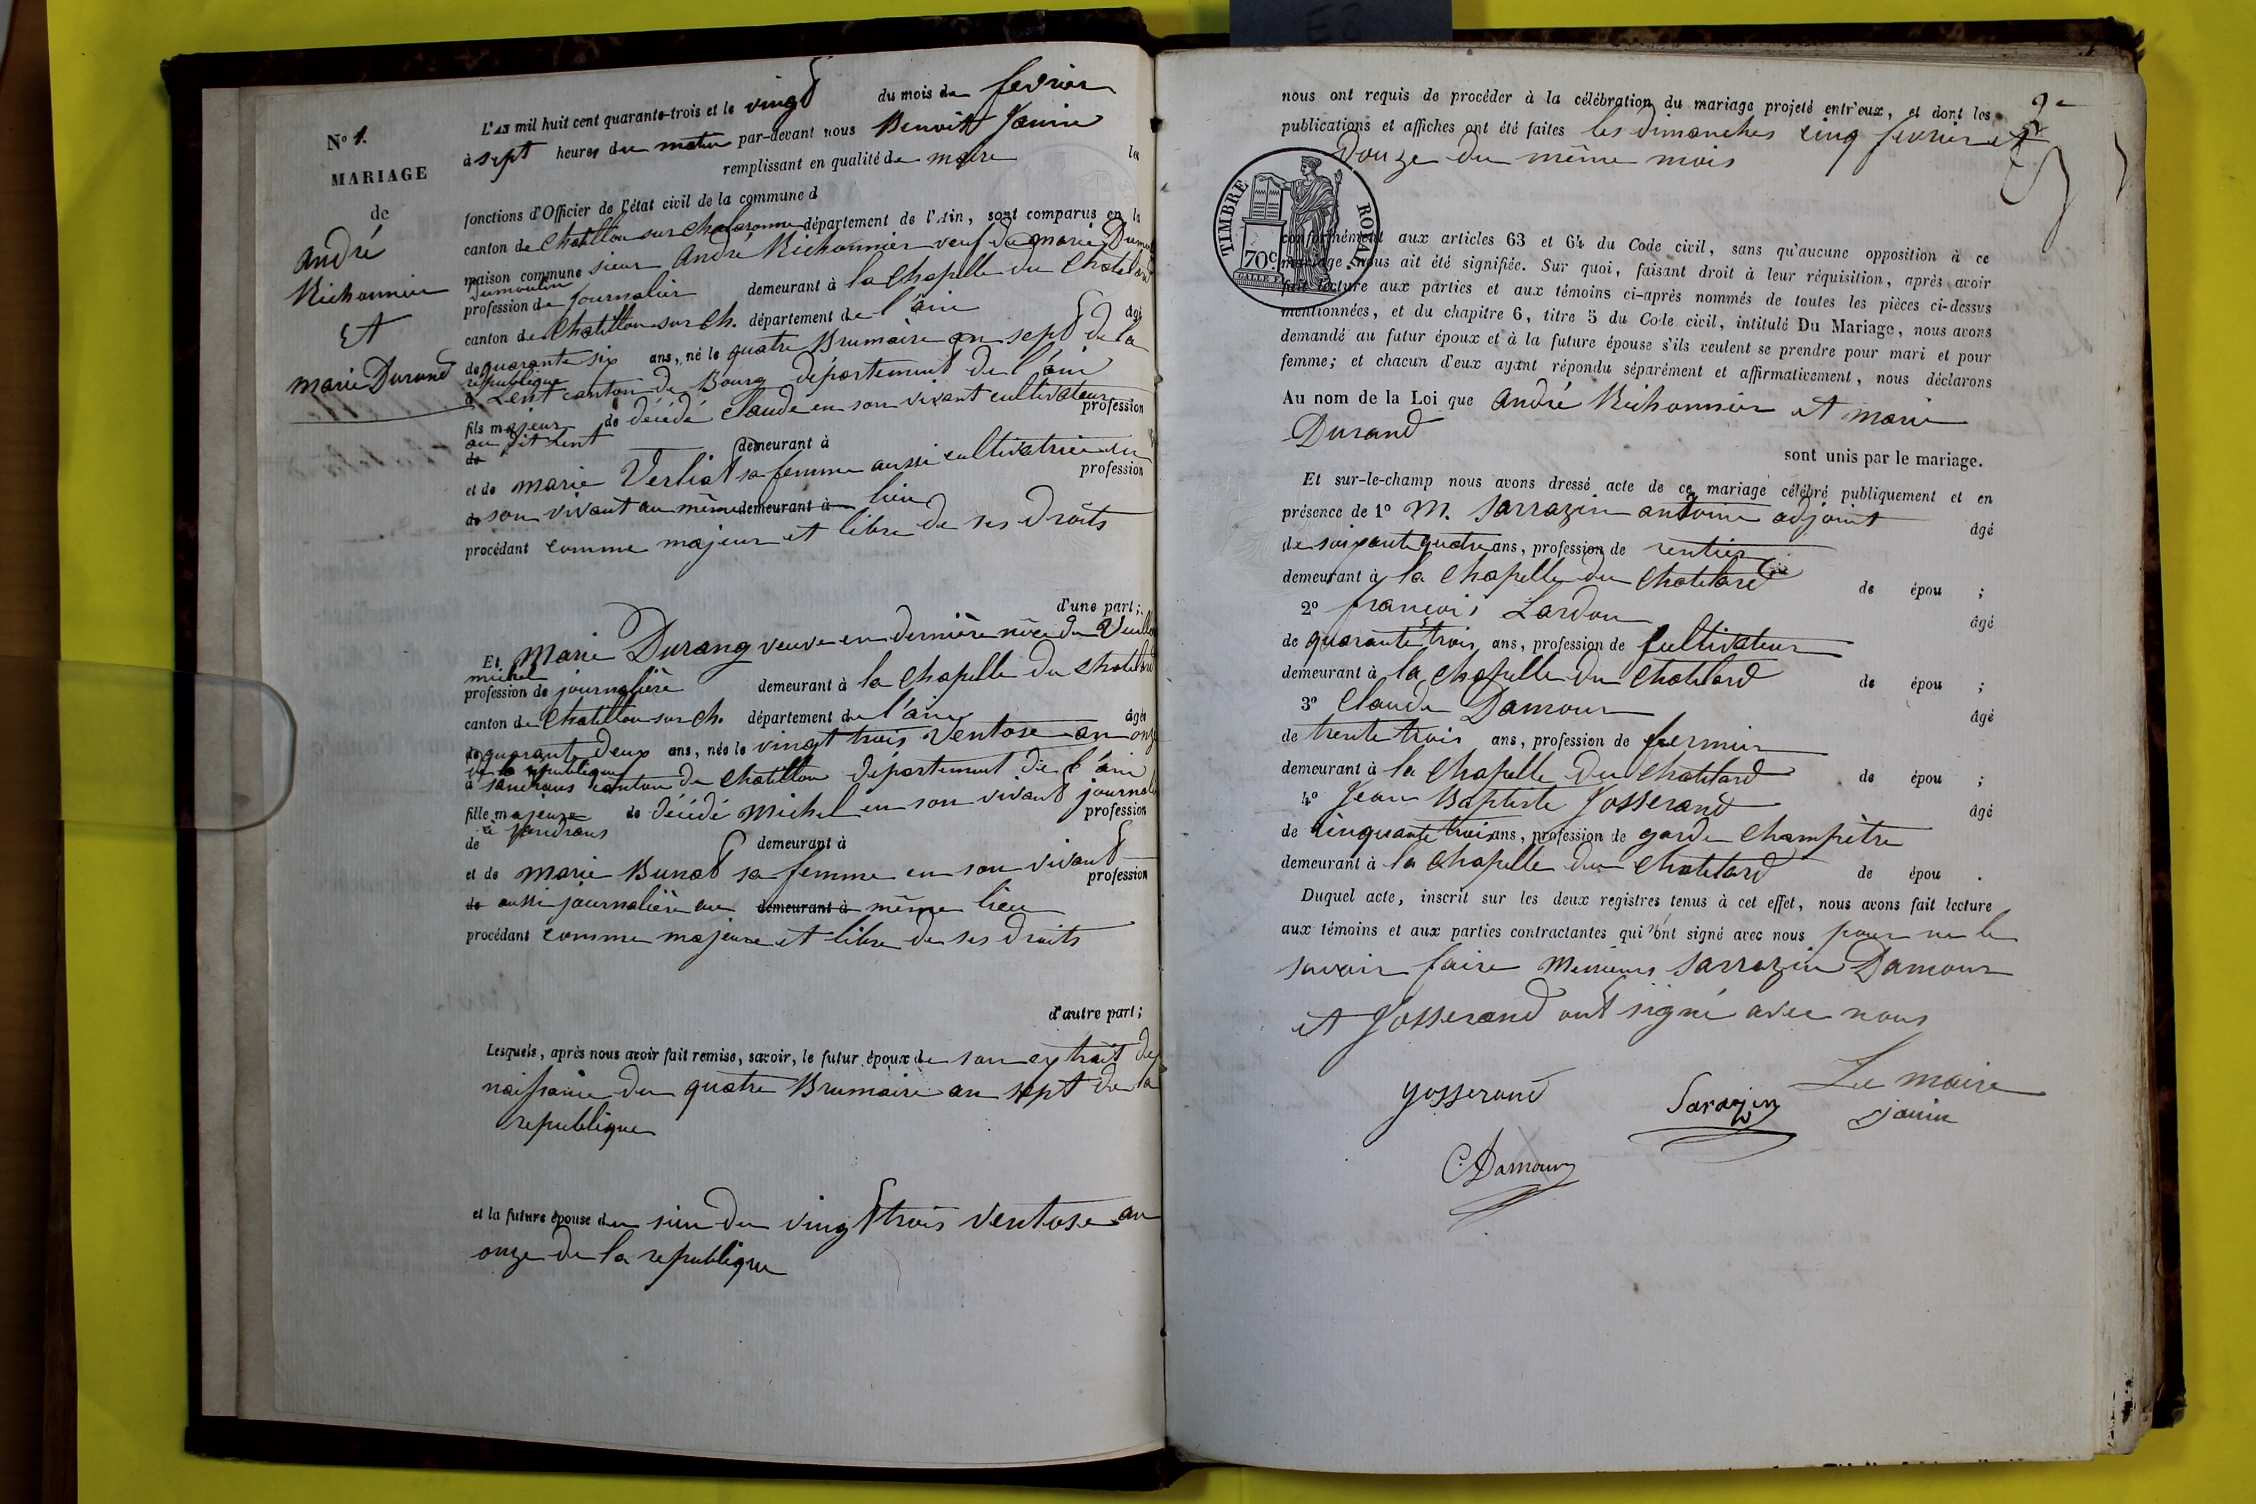 N° 1.
MARIAGE
de
André
Richonnier
et
marie Durand
L'AN mil huit cent quarante-trois et le vingt du mois de fevrier
à sept heures du matin par-devant nous Benoit Janin
remplissant en qualité de maire les
fonctions d'Officier de l'état civil de la commune d
canton de Chatillon sur Chalaronne département de l'Ain, sont comparus en la
maison commune sieur André Richonnier veuf de marie
Dumoulin
profession de journalier demeurant à la Chapelle du Chatelard
canton de Chatillon sur Ch. département de l'ain âgé
de quarante six ans, né le quatre Brumaire an sept de la
republique
à Lent canton de Bourg département de l'ain
fils majeur de décédé Claude en son vivant cultivateur profession
au dit Lent
de demeurant à
et de marie Verliat sa femme aussi cultivatrice en profession
de son vivant au même demeurant à lieu
procédant comme majeur et libre de ses droits
d'une part;
Et Marie Durang veuve en dernière noce de
michel
profession de journalière demeurant à la Chapelle du Chatelard
canton de Chatillon sur Ch. département de l'ain âgée
de quarante deux ans, née le vingt trois Ventose an onze
de la republique
à Sandrans canton de Chatillon departement de l'ain
fille majeure de décédé Michel en son vivant journalier profession
à Sandrans
de demeurant à
et de marie Bunod sa femme en son vivant profession
de aussi journalière au demeurant à même lieu
procédant comme majeure et libre de ses droits
d'autre part;
Lesquels, après nous avoir fait remise, savoir, le futur époux de son extrait de
naissance du quatre Brumaire an sept de la
republique
et la future épouse du sien du vingt trois Ventose an
onze de la republique
2e
nous ont requis de procéder à la célébration du mariage projeté entr'eux, et dont les
publications et affiches ont été faites les dimanches cinq fevrier et
Douze du même mois
TIMBRE ROYAL
70c
conformément aux articles 63 et 64 du Code civil, sans qu'aucune opposition à ce
mariage nous ait été signifiée. Sur quoi, faisant droit à leur réquisition, après avoir
fait lecture aux parties et aux témoins ci-après nommés de toutes les pièces ci-dessus
mentionnées, et du chapitre 6, titre 5 du Code civil, intitulé Du Mariage, nous avons
demandé au futur époux et à la future épouse s'ils veulent se prendre pour mari et pour
femme; et chacun d'eux ayant répondu séparément et affirmativement, nous déclarons
Au nom de la Loi que André Richonnier et marie
Durand
sont unis par le mariage.
Et sur-le-champ nous avons dressé acte de ce mariage célébré publiquement et en
présence de 1° M. Sarrazin antoine adjoint âgé
de soixante quatre ans, profession de rentier
demeurant à la Chapelle du Chatelard de épou ;
2° françois Lardon âgé
de quarante trois ans, profession de cultivateur
demeurant à la Chapelle du Chatelard de épou ;
3° Claude Damour âgé
de trente trois ans, profession de fermier
demeurant à la Chapelle du Chatelard de épou ;
4° Jean Baptiste Josserand âgé
de cinquante trois ans, profession de garde Champêtre
demeurant à la Chapelle du Chatelard de épou .
Duquel acte, inscrit sur les deux registres tenus à cet effet, nous avons fait lecture
aux témoins et aux parties contractantes qui n'ont signé avec nous pour ne le
savoir faire Messieurs Sarrazin Damour
et Josserand ont signé avec nous
Le maire
Josserand Sarazin Janin
C. Damour